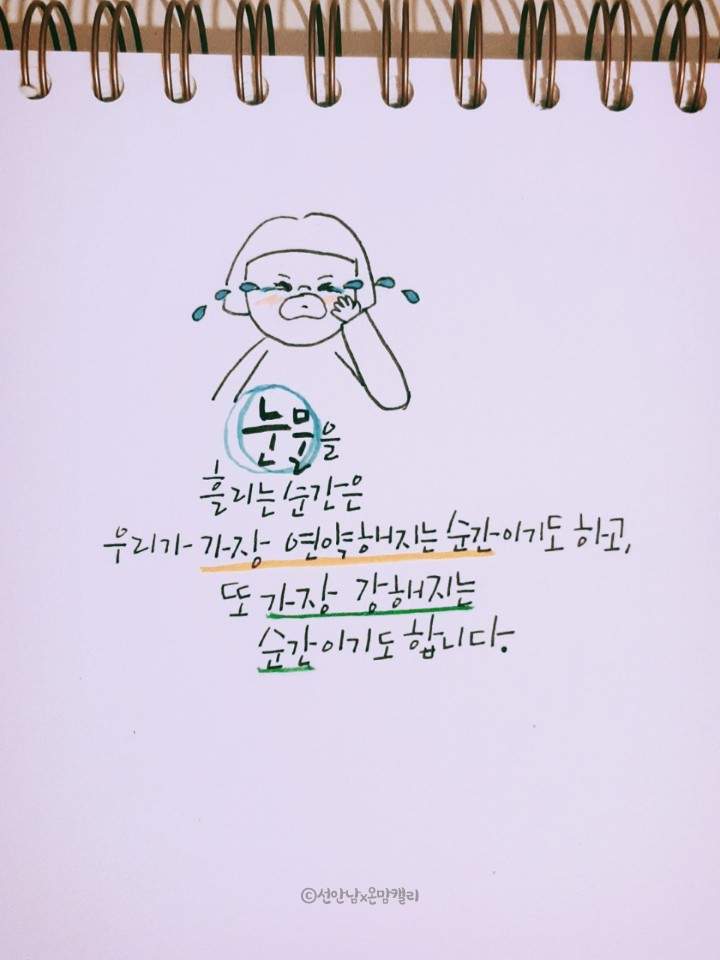 눈물을
흘리는 순간은
우리가 가장 연약해지는 순간이기도 하고,
또 가장 강해지는
순간이기도 합니다.
©선안남x온맘캘리